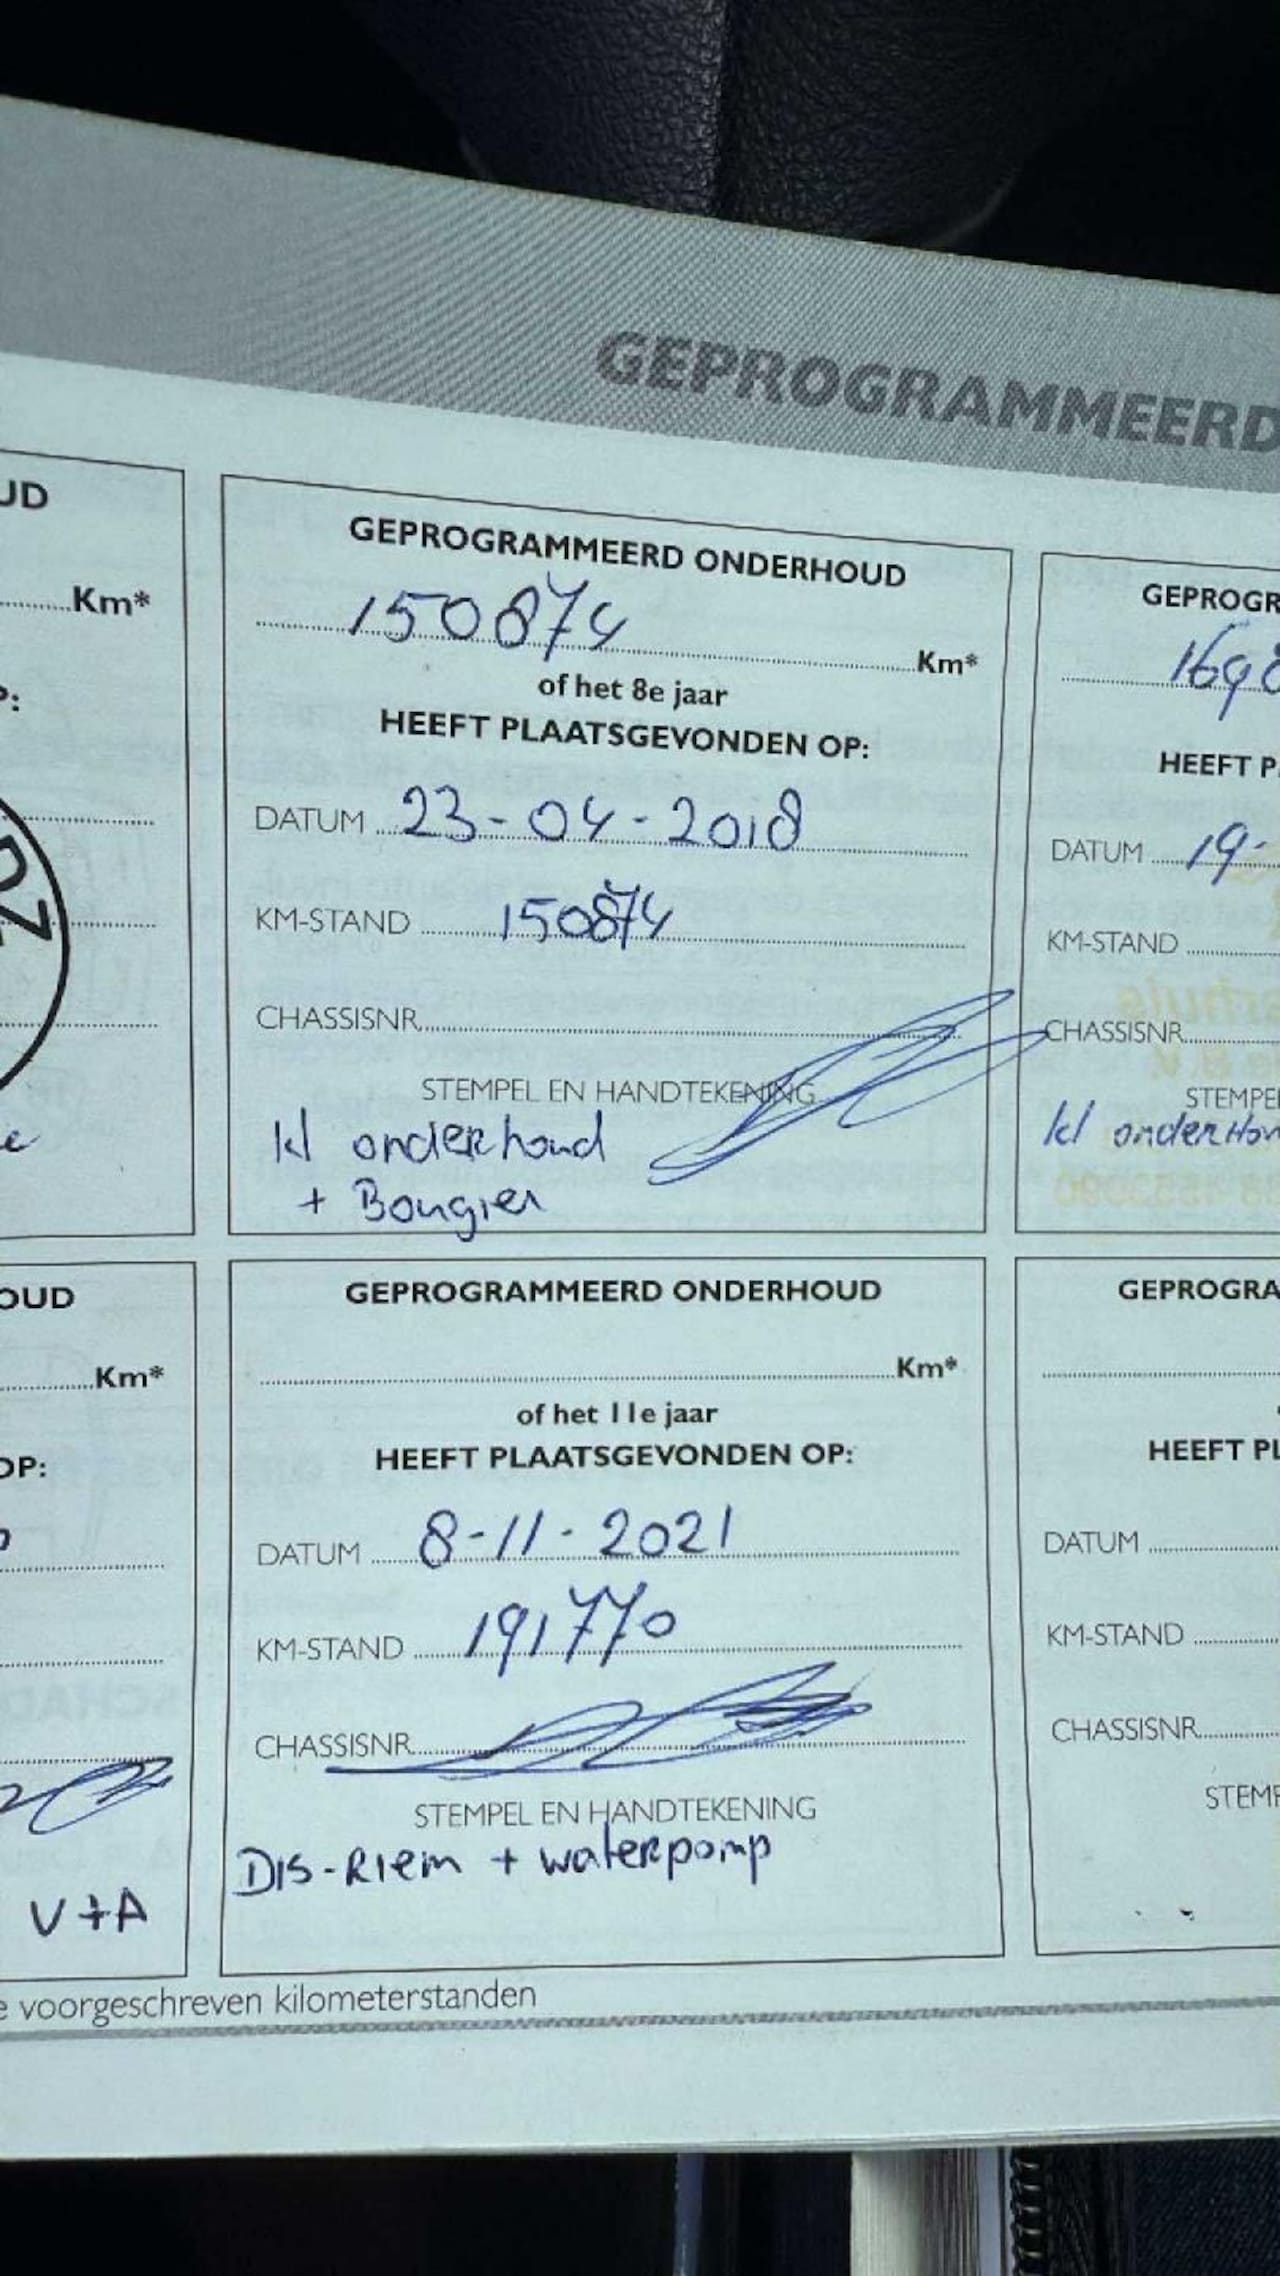 GEPROGRAMMEERD
UD
Km*
P:
GEPROGRAMMEERD ONDERHOUD
150874 Km*
of het 8e jaar
HEEFT PLAATSGEVONDEN OP:
DATUM 23-04-2018
KM-STAND 150874
CHASSISNR.
STEMPEL EN HANDTEKENING
kl onderhoud
+ Bougier
GEPROGR
1698
HEEFT P
DATUM 19-
KM-STAND
CHASSISNR.
STEMPE
kl onderhou
OUD
Km*
OP:
V+A
GEPROGRAMMEERD ONDERHOUD
Km*
of het 11e jaar
HEEFT PLAATSGEVONDEN OP:
DATUM 8-11-2021
KM-STAND 191770
CHASSISNR.
STEMPEL EN HANDTEKENING
Dis-Riem + waterpomp
GEPROGRA
HEEFT PL
DATUM
KM-STAND
CHASSISNR.
STEMP
e voorgeschreven kilometerstanden